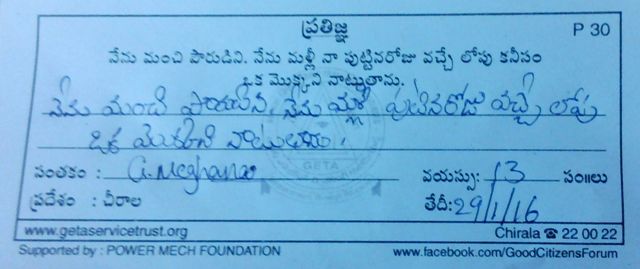 ప్రతిజ్ఞ P 30
నేను మంచి పౌరుడిని. నేను మళ్లీ నా పుట్టినరోజు వచ్చే లోపు కనీసం
ఒక మొక్కని నాట్తుతాను.
నేను మంచి పౌరుడిన నేను మ్లళీ పుటినరోజు వచ్చే లోపు
ఒక మొకని నాటుతాను.
సంతకం : G. Meghana వయస్సు: 13 సం॥లు
GETA
ప్రదేశం : చీరాల తేదీ: 29/1/16
www.getaservicetrust.org Chirala ☎ 22 00 22
Supported by : POWER MECH FOUNDATION www.facebook.com/GoodCitizensForum